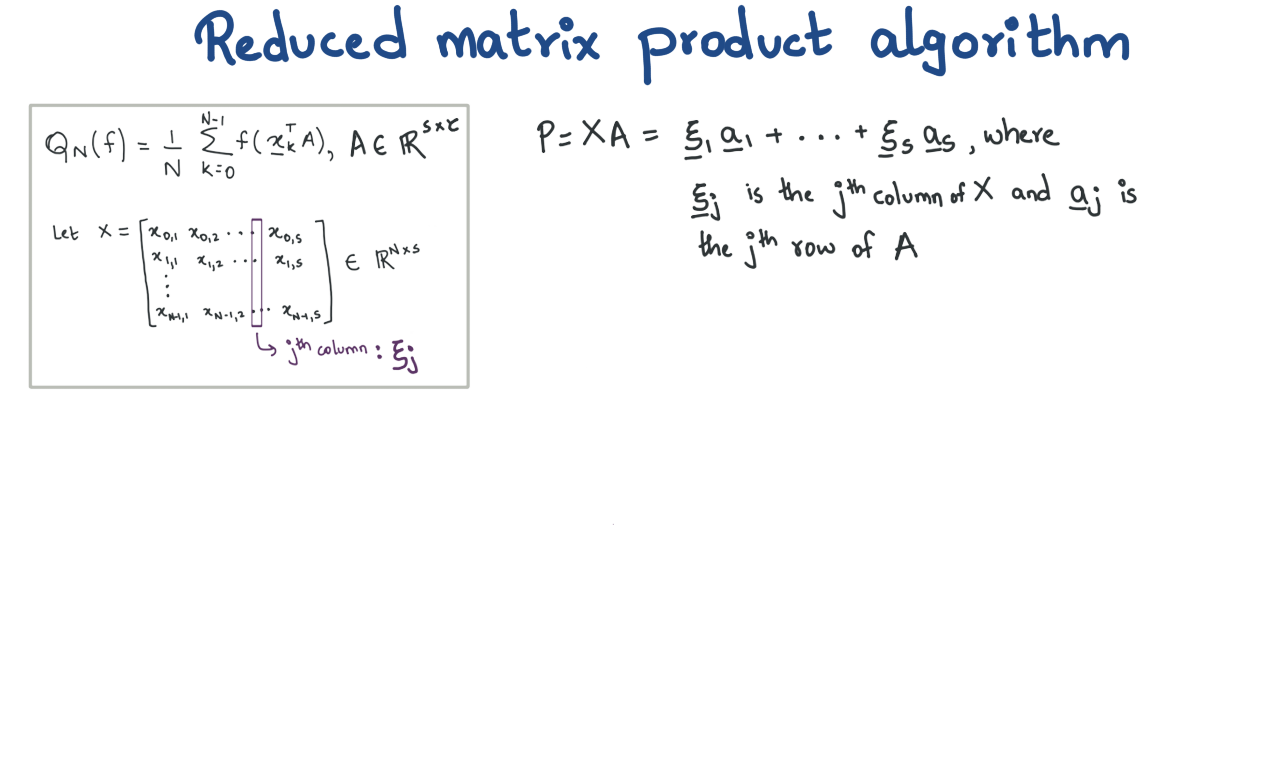 Reduced matrix product algorithm
Q_N(f) = 1/N ∑_{k=0}^{N-1} f(x_k^T A), A ∈ ℝ^{s×τ}
Let X = [x_{0,1} x_{0,2} ... x_{0,s}
x_{1,1} x_{1,2} ... x_{1,s}
⋮
x_{N-1,1} x_{N-1,2} ... x_{N-1,s}] ∈ ℝ^{N×s}
↳ j^th column : ξ_j
P = XA = ξ_1 a_1 + ... + ξ_s a_s, where
ξ_j is the j^th column of X and a_j is
the j^th row of A